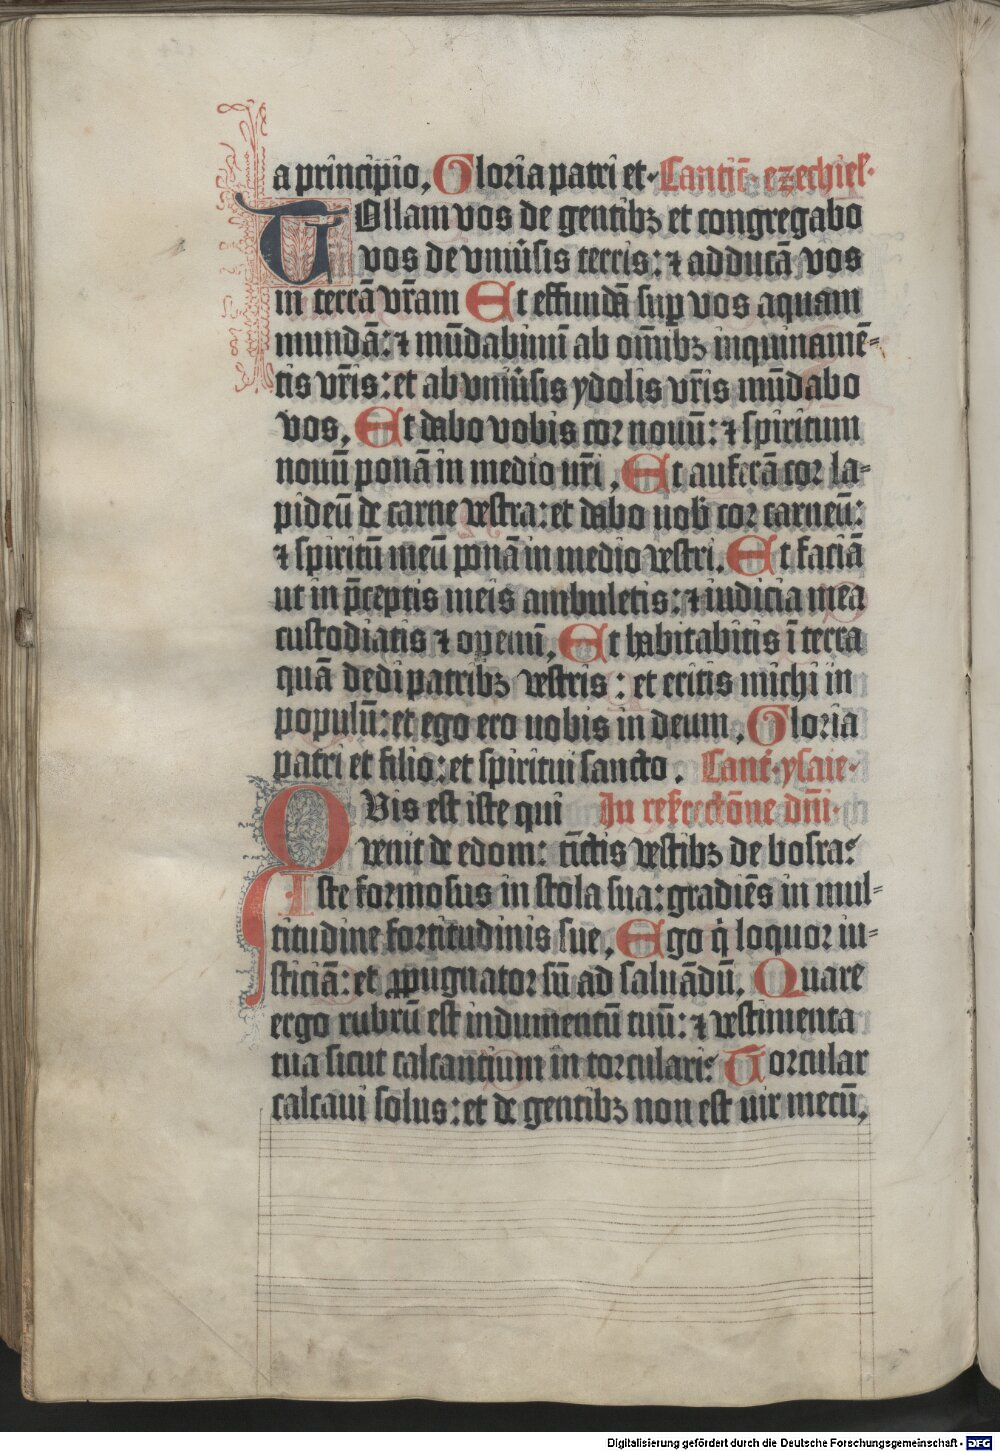 a principio. Gloria patri et. Cantic̄. ezechiel.
TOllam vos de gentibꝫ et congregabo
vos de vniu̾sis terris: ⁊ adducā vos
in terrā vr̄am Et effundā suꝑ vos aquam
mundā: ⁊ mūdabimī ab om̄ibꝫ inquinamē-
tis vr̄is: et ab vniu̾sis ydolis vr̄is mūdabo
vos. Et dabo vobis cor nouū: ⁊ spiritum
nouū ponā in medio vr̄i. Et auferā cor la-
pideū de carne vestra: et dabo uob̾ cor carneū:
⁊ spiritū meū ponā in medio vestri. Et faciā
ut in p̄ceptis meis ambuletis: ⁊ iudicia mea
custodiatis ⁊ opemī. Et habitabitis ī terra
quā dedi patribꝫ vestris: et eritis michi in
populū: et ego ero uobis in deum. Gloria
patri et filio: et spiritui sancto. Cant̄. ysaie.
QVis est iste qui In resurrectōne dn̄i.
venit de edom: tīctis vestibꝫ de bosra:
Iste formosus in stola sua: gradiēs in mul-
titudine fortitudinis sue. Ego q̇ loquor iu-
sticiā: et ꝓpugnator sū ad saluādū. Quare
ergo rubrū est indumentū tuū: ⁊ vestimenta
tua sicut calcantium in torculari: Torcular
calcaui solus: et de gentibꝫ non est uir mecū.
Digitalisierung gefördert durch die Deutsche Forschungsgemeinschaft - DFG